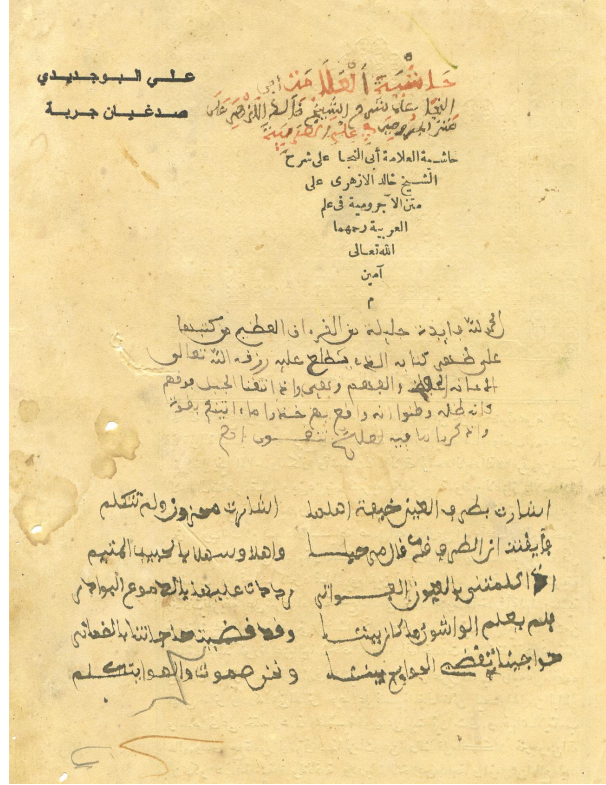 علي البوجديدي
صدغيان جربة
حاشية العلامة أبي
النجا على شرح الشيخ خالد الازهري على
متن الاجرومية في علم العربية
حاشية العلامة أبى النجا على شرح
الشيخ خالد الازهرى على
متن الآجرومية فى علم
العربية رحمهما
الله تعالى
آمين
م
الحمد لله فايدة جليلة من القرءان العظيم من كتبها
على ظهر كتابه الذي يطلع عليه رزقه الله تعالى
والفهم وهي واذ نتقنا الجبل فوقهم
كانه ظلة وظنوا انه واقع بهم خذوا ما ءاتينكم بقوة
واذكروا ما فيه لعلكم تتقون
اشارت بطرف العين خيفة اهلها اشارت محزون ولم تتكلم
فأيقنت ان الطرف قد قال مرحبا واهلا وسهلا بالحبيب المتيم
كلمتني بالعيون
فلم يعلم الواشون ما كان بيننا وقد قضيت حاجاتنا
حواجبنا تقضي الحوايج بيننا ونحن صموت والهوا يتكلم